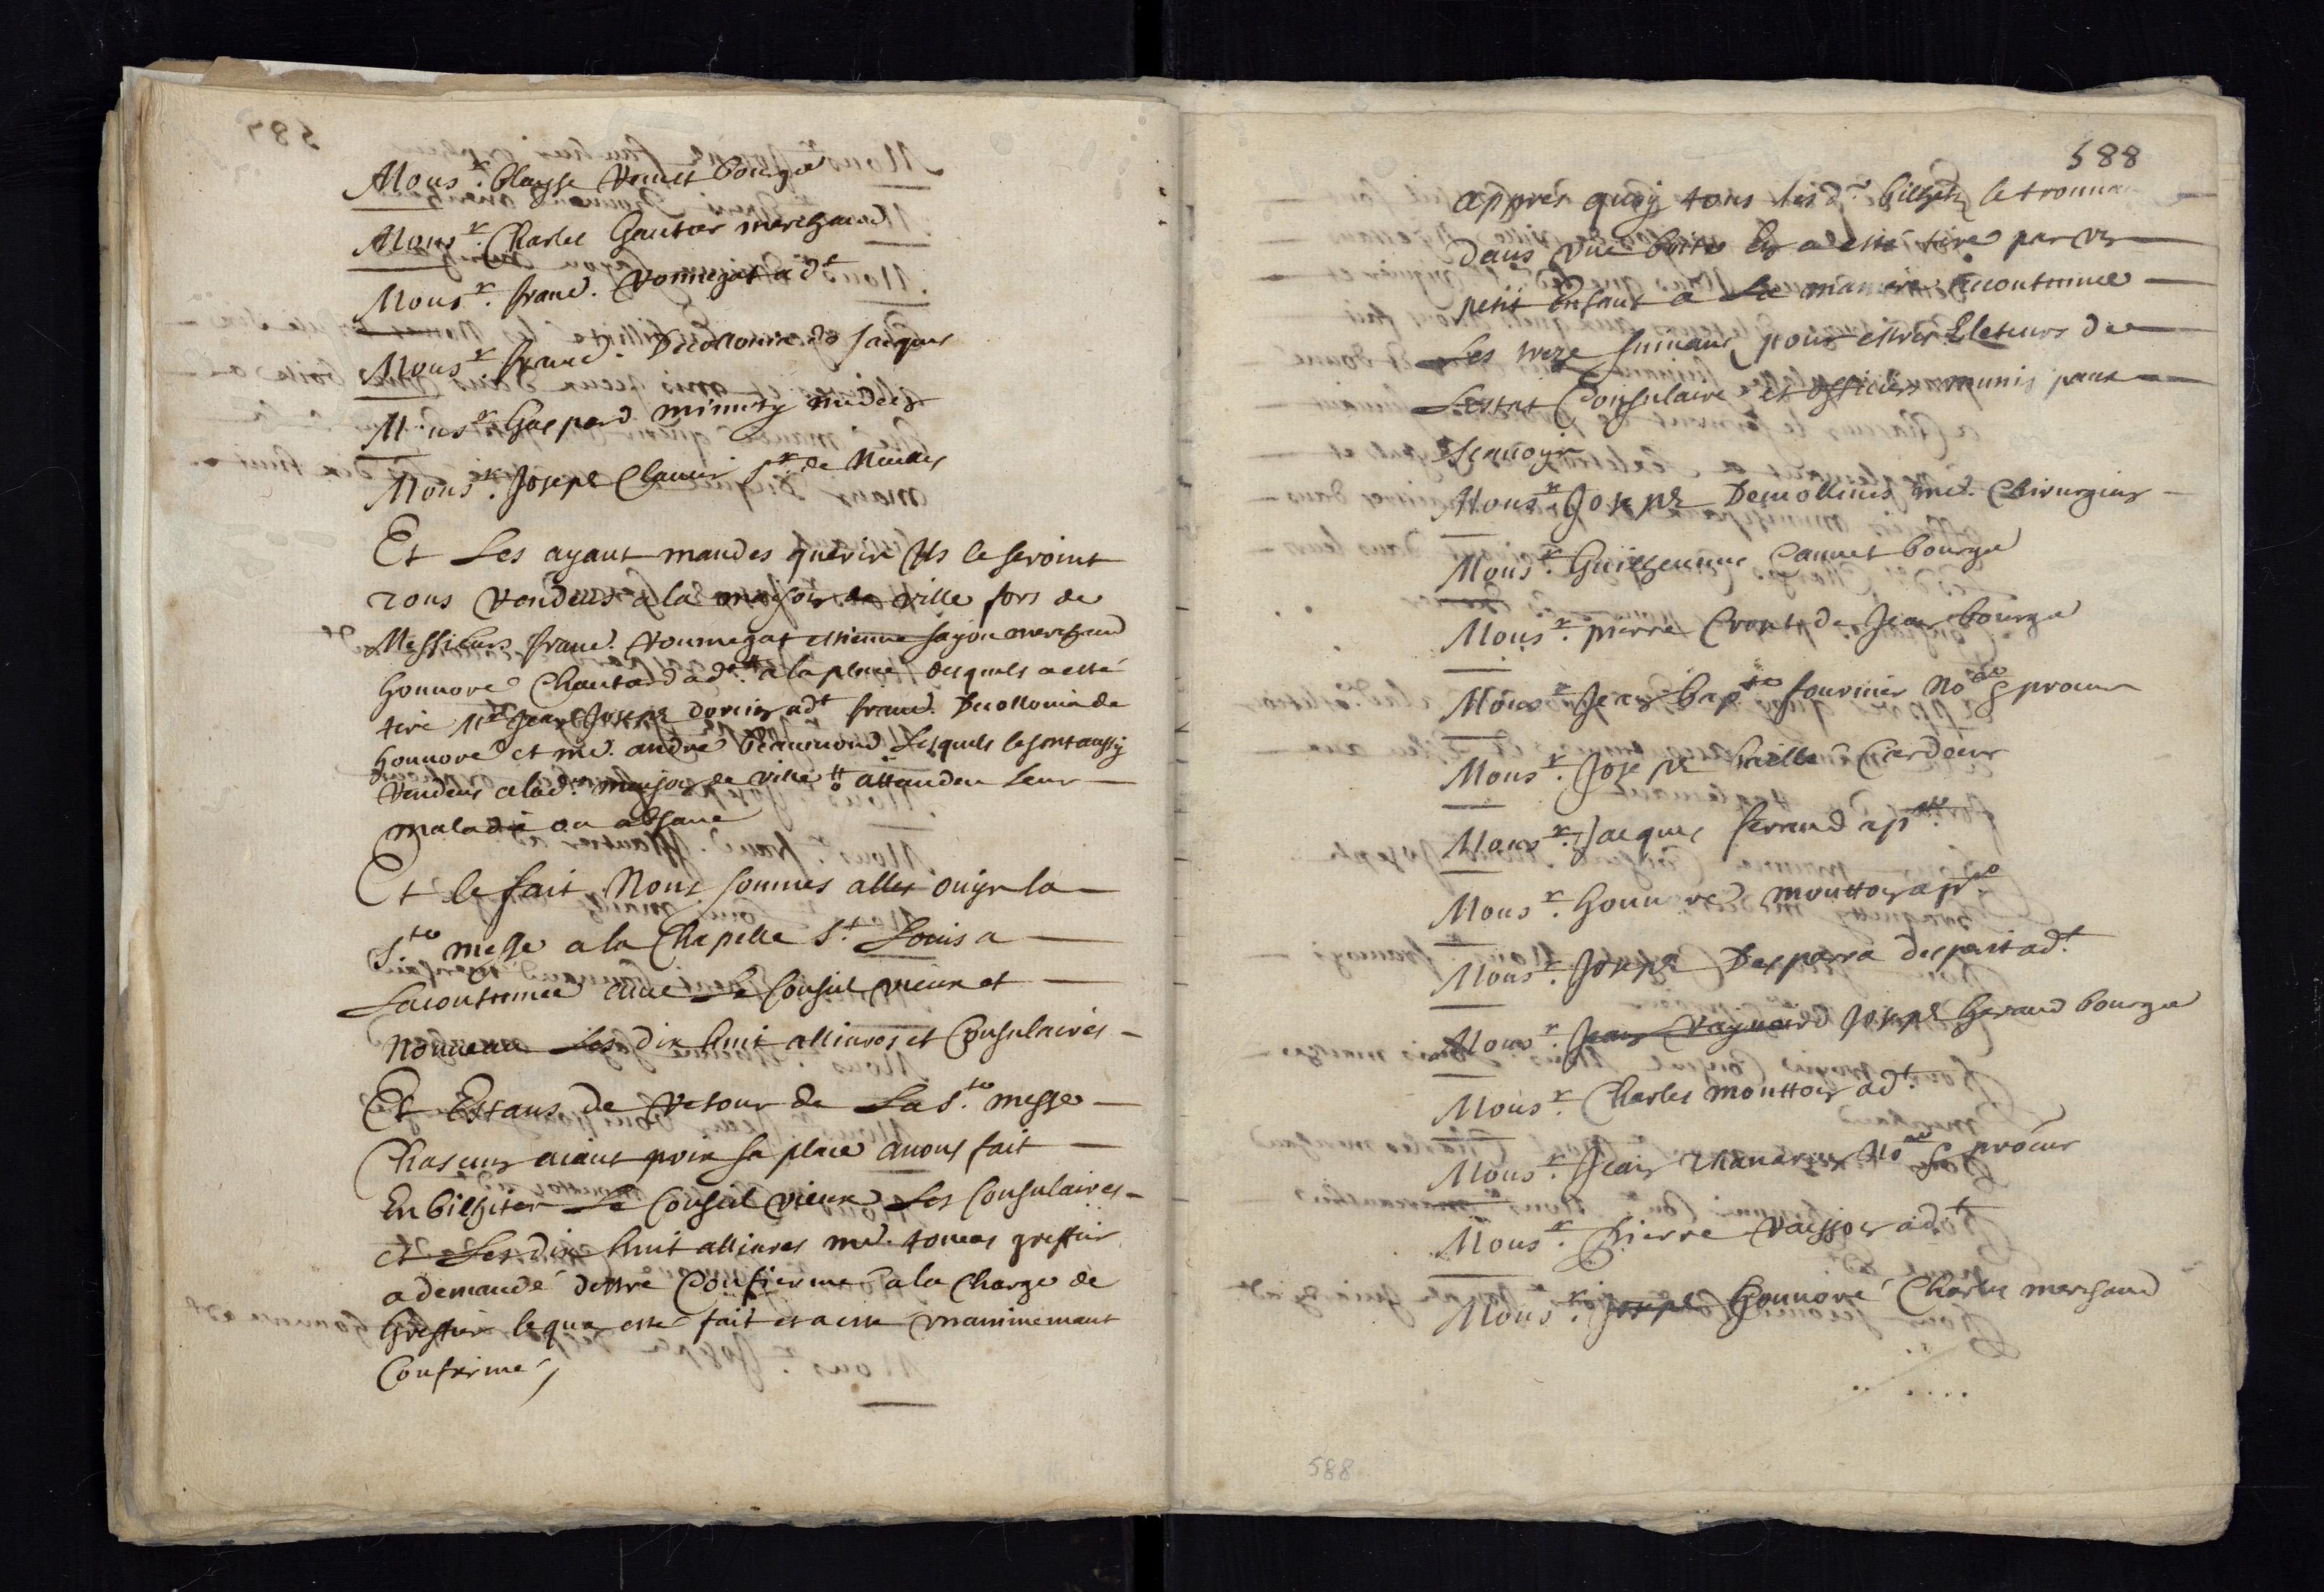 Mons.r blayse bourge
Mons.r Charles Gautier merchand
Mons.r franc. Vonmegat adt
Mons.r franc. Decollonia de Jacques
Mons.r Gaspard minuty medecin
Mons.r Joseph Clauier sr de Neulles
Et Les ayant mandes querir Ils se seroint
tous randeus a la maison de ville fors de
Messieurs franc. Vonmegat estienne fayon merchand
honnore Chautard adt a la place desquels a esté
tiré Mr Jean Joseph adt franc. Decollonia de
honnoré et me. andré beaumond Lesquels se sont aussy
randeus a lad. maison de ville attandeu Leur
maladie ou absance
Et se fait Nous sommes alles ouyr la
S.te messe a la Chapelle S.t Louis a
Lacoutumée auec Le Consul vieux et
nouueau Les dix huit alliures et Consulaires
Et Estans de retour de La S.te messe
Chascung aiant prin sa place auons fait
Enbilheter Le Consul vieux Les Consulaires
et Les dix huit alliures me. tomas greffier
a demandé destre Confierme a la Charge de
Greffier le qua este fait et a este vnanimemant
Confirmé
588
appres quoy tous les d. bilhets se trouua
dans vne boite En a esté tiré par vn
petit Enfant a La maniere acoutumée
Les treze suiuans pour estres Eleteurs de
Lestat Consulaire et officiers munis paux
Scauoyr
Mons.r Joseph Demollines me. Chirurgien
Mons.r Guilheaume Cannet bourge
Mons.r pierre de Jean bourge
Mons.r Jean bap.te fournier No.re procur
Mons.r Joseph Cierdeur
Mons.r Jacques ferrand ap.re
Mons.r honnore moutton ap.re
Mons.r Joseph Desparra despart ad.t
Mons.r Jean Raynard Joseph Geraud bourge
Mons.r Charles moutton ad.t
Mons.r Jean No.re procur
Mons.r Pierre Vaisson ad.t
Mons.r Joseph honnoré Charles merchand
588